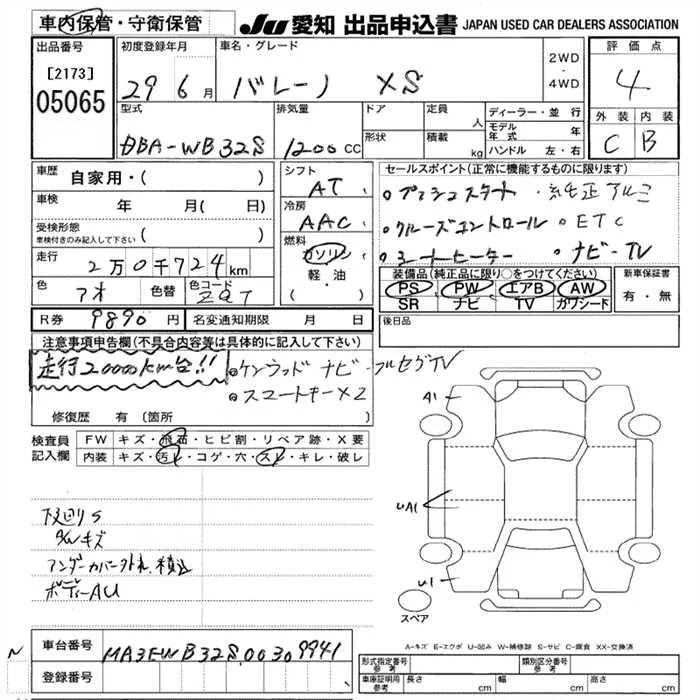 車内保管・守衛保管
JU 愛知 出品申込書 JAPAN USED CAR DEALERS ASSOCIATION
出品番号
[2173]
05065
初度登録年月
29 6月
車名・グレード
バレーノ XS
2WD
・
4WD
評価点
4
外装 内装
C B
型式
DBA-WB32S
排気量
1200 CC
ドア
形状
定員 人
積載 kg
ディーラー・並行
モデル年式 年
ハンドル 左・右
車歴 自家用・( )
車検 年 月( 日)
受検形態
車検付きのみ記入して下さい ( )
走行 2万0千724km
色 アオ 色替 色コード ZQT
シフト
AT
冷房
AAC
燃料
ガソリン
軽・油
( )
セールスポイント(正常に機能するものに限ります)
・プッシュスタート ・純正アルミ
・クルーズコントロール ・ETC
・シートヒーター ・ナビ・TV
装備品(純正品に限り○をつけてください)
PS PW エアB AW
SR ナビ TV カワシード
新車保証書
有・無
R券 9890円 名変通知期限 月 日
後日品
注意事項申告欄(不具合内容等は具体的に記入して下さい)
走行20000km台!!
・ケンウッド ナビ・フルセグTV
・スマートキー×2
修復歴 有(箇所 )
検査員記入欄
FW キズ・飛石・ヒビ割・リペア跡・X要
内装 キズ・汚レ・コゲ・穴・スレ・キレ・破レ
下回りS
A/Wキズ
アンダーカバー外れ、積込
ボディーAU
A1
UA1
U1
スペア
A-キズ E-エクボ U-凹み W-補修跡 S-サビ C-腐食 XX-交換済
N
車台番号 MA3EWB32S00309941
登録番号
形式指定番号 参考
類別区分番号 参考
車庫証明用 参考 長さ cm 幅 cm 高さ cm